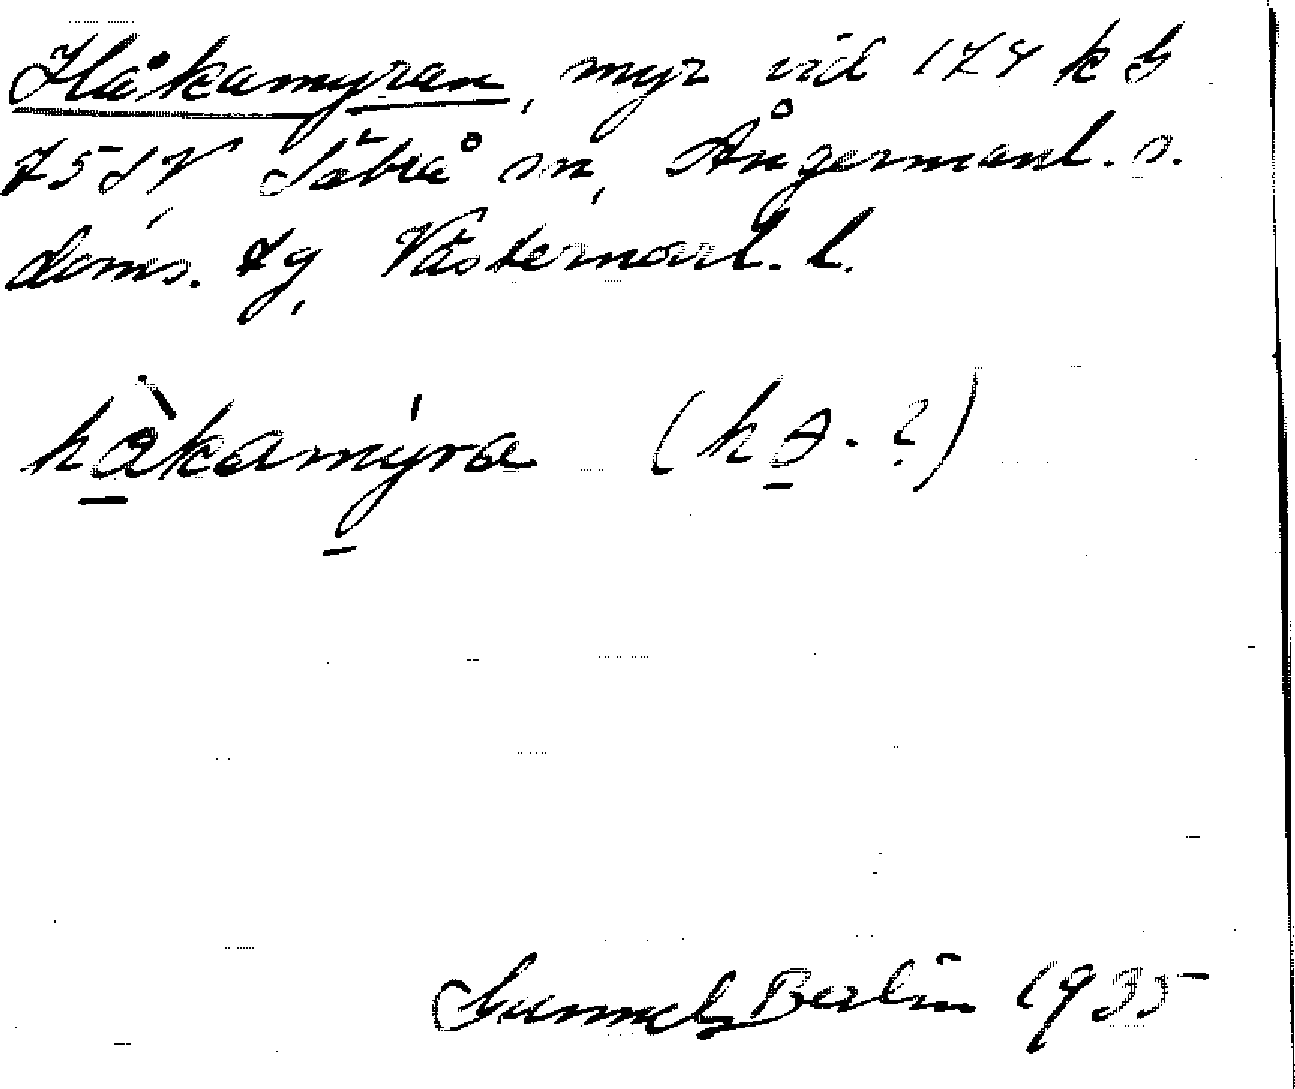 Håkamyren, myr vid 174 k G
75 SV Säbrå sn, Ångermanl. s.
doms. tg, Västernorrl. l.
håkamyra (hə-?)
Gunnel Berlin 1935